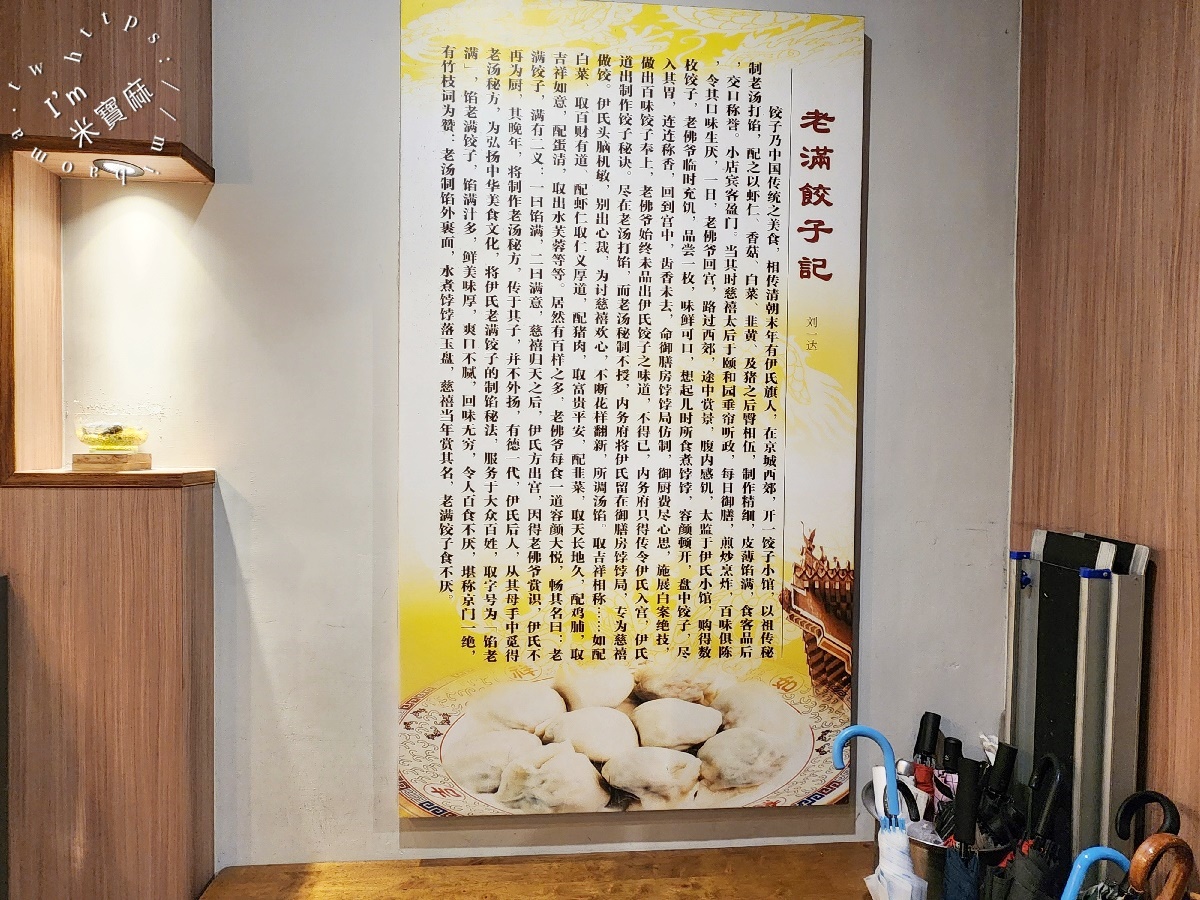 老滿餃子記
刘一达
饺子乃中国传统之美食，相传清朝末年有伊氏旗人，在京城西郊，开一饺子小馆，以祖传秘
制老汤打馅，配之以虾仁、香菇、白菜、韭黄、及猪之后臀相伍，制作精细，皮薄馅满，食客品后
，交口称誉。小店宾客盈门。当其时慈禧太后于颐和园垂帘听政，每日御膳，煎炒烹炸，百味俱陈
，令其口味生厌，一日，老佛爷回宫，路过西郊，途中赏景，腹内感饥，太监于伊氏小馆，购得数
枚饺子，老佛爷临时充饥，品尝一枚，味鲜可口，想起儿时所食煮饽饽，容颜顿开，盘中饺子，尽
入其胃，连连称香，回到宫中，齿香未去，命御膳房饽饽局仿制，御厨费尽心思，施展白案绝技，
做出百味饺子奉上，老佛爷始终未品出伊氏饺子之味道，不得已，内务府只得传令伊氏入宫，伊氏
道出制作饺子秘诀。尽在老汤打馅，而老汤秘制不授，内务府将伊氏留在御膳房饽饽局，专为慈禧
做饺。伊氏头脑机敏，别出心裁，为讨慈禧欢心，不断花样翻新，所调汤馅。取吉祥相称……如配
白菜、取百财有道，配虾仁取仁义厚道，配猪肉，取富贵平安，配韭菜，取天长地久，配鸡脯，取
吉祥如意，配蛋清，取出水芙蓉等等。居然有百样之多，老佛爷每食一道容颜大悦，畅其名曰：老
满饺子，满有二义：一曰馅满，二曰满意，慈禧归天之后，伊氏方出宫，因得老佛爷赏识，伊氏不
再为厨，其晚年，将制作老汤秘方，传于其子，并不外扬，有德一代，伊氏后人，从其母手中觅得
老汤秘方，为弘扬中华美食文化，将伊氏老满饺子的制馅秘法，服务于大众百姓，取字号为「馅老
满」，馅老满饺子，馅满汁多，鲜美味厚，爽口不腻，回味无穷，令人百食不厌，堪称京门一绝，
有竹枝词为赞：老汤制馅外裹面，水煮饽饽落玉盘，慈禧当年赏其名，老满饺子食不厌。
I'm
米寶麻
吉